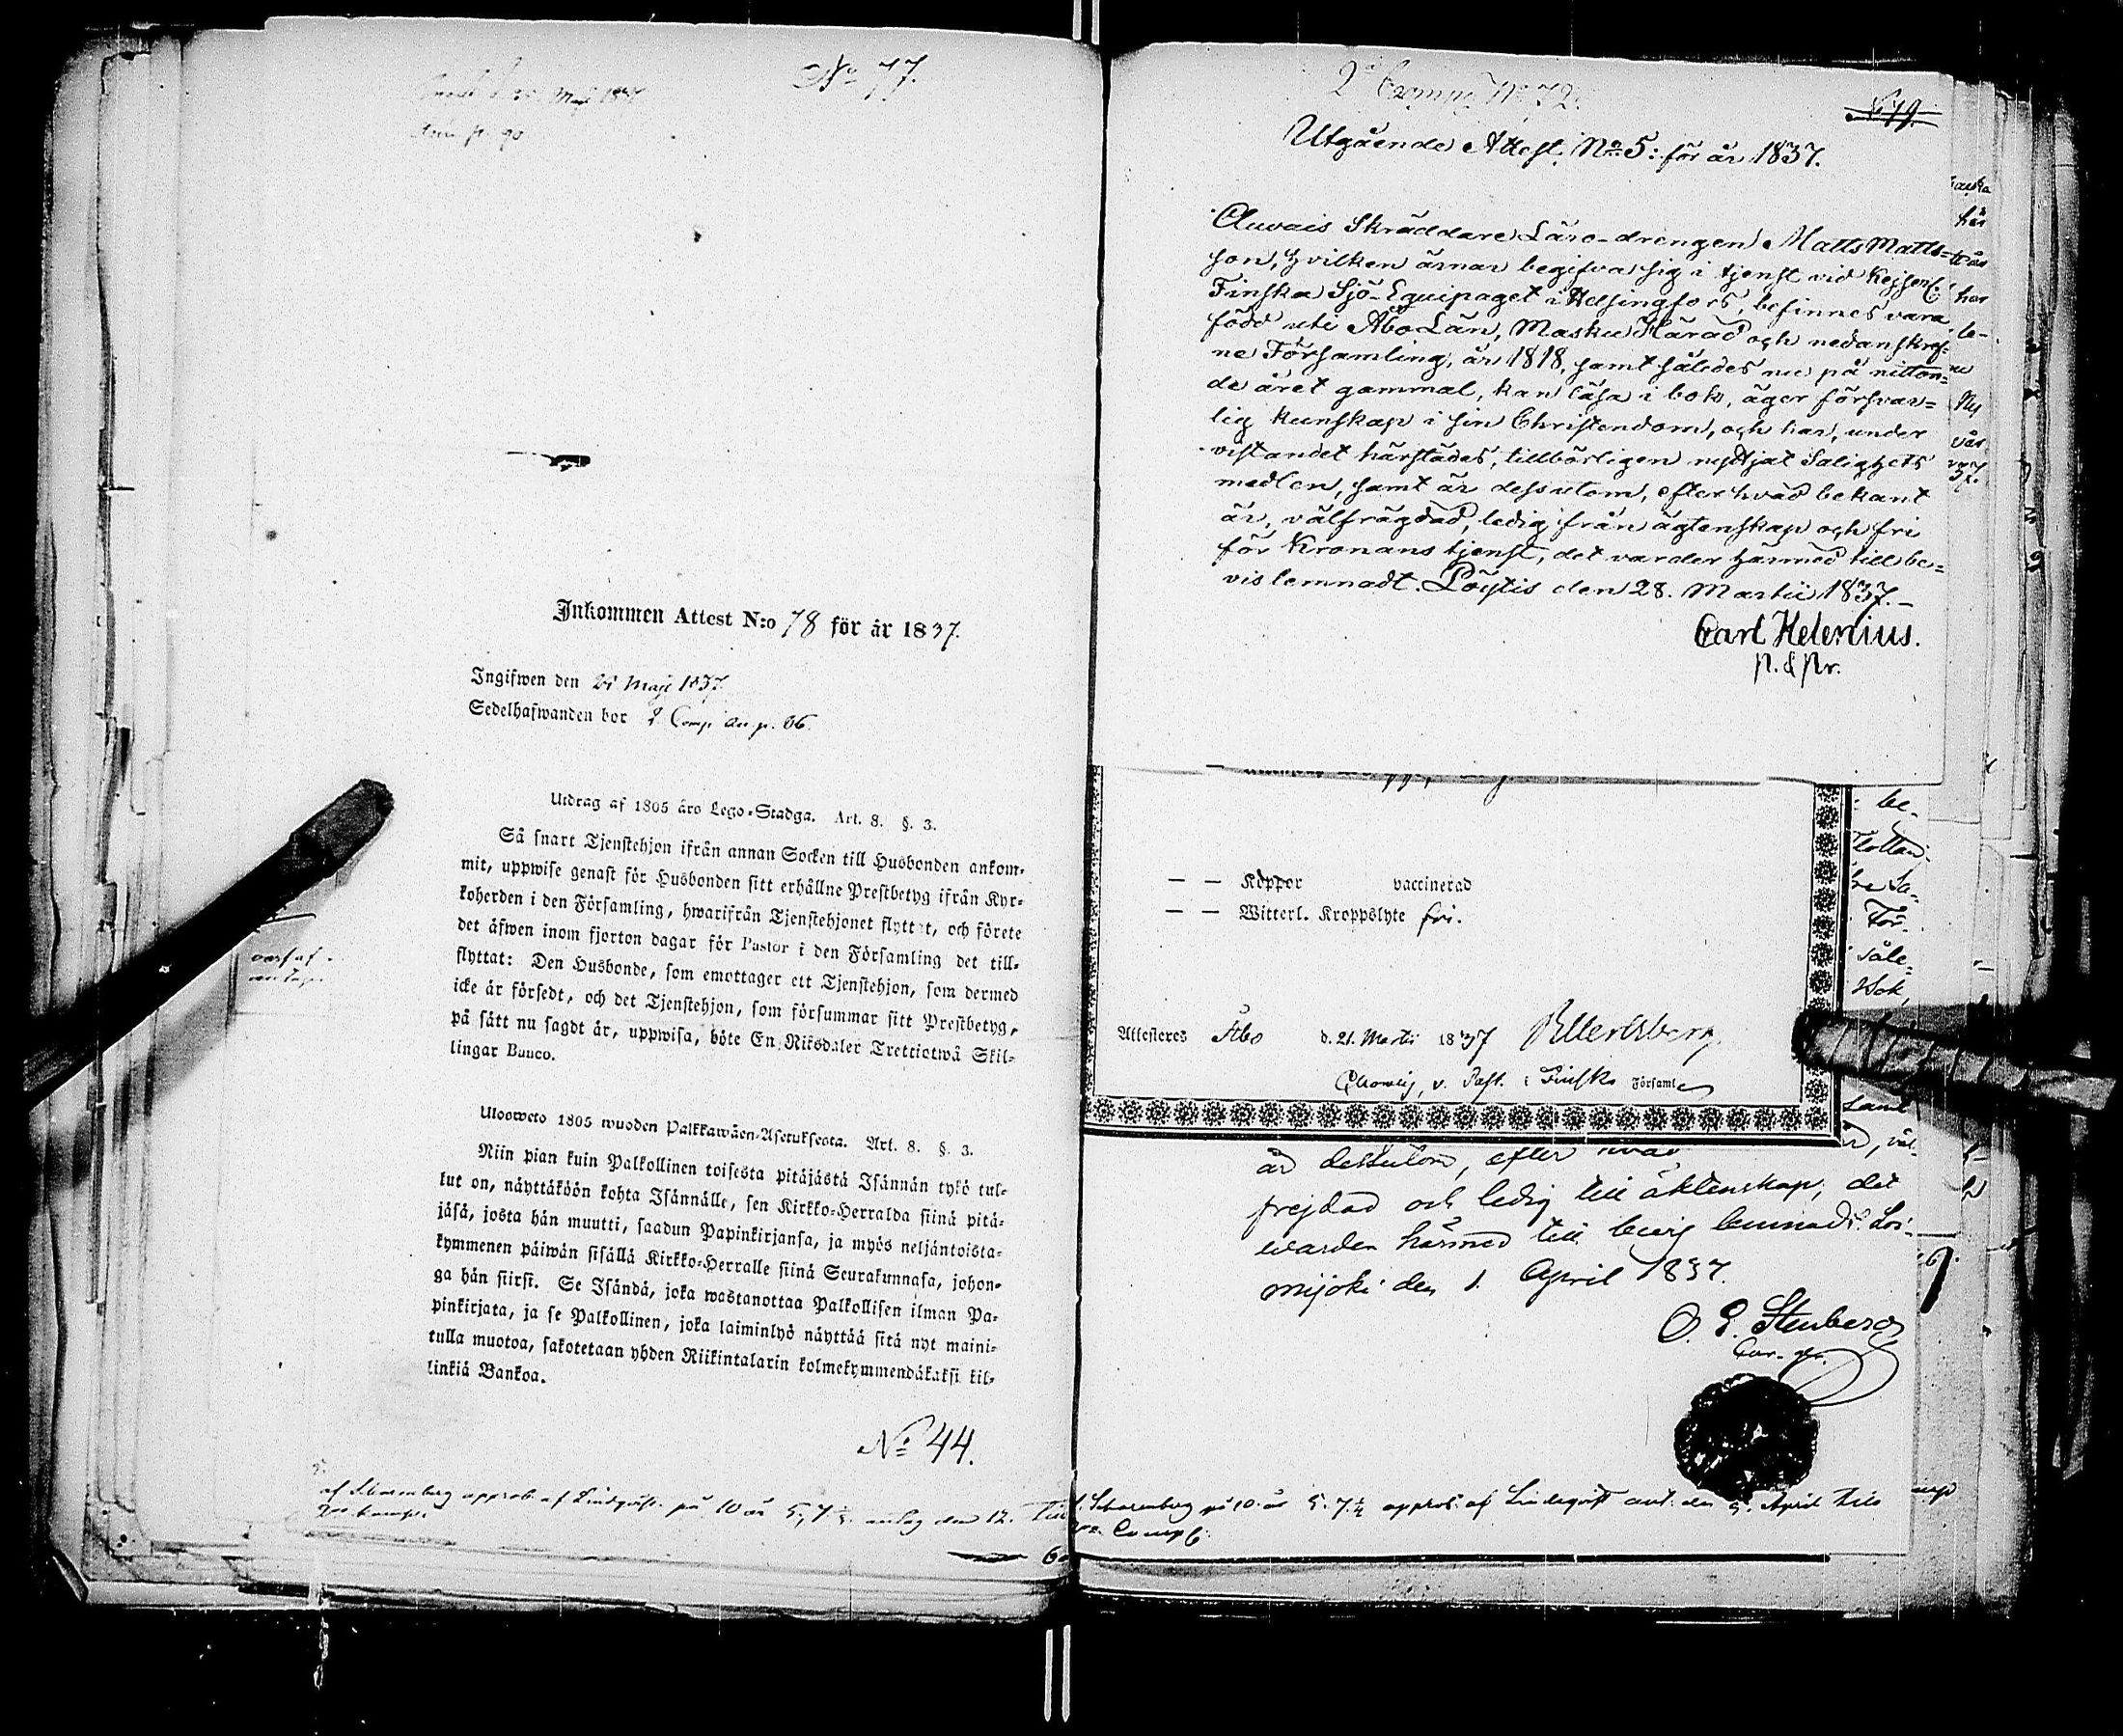 No 77.
Maji 1837
Inkommen Attest N:o 78 för år 1837.
Ingifwen den 21 Maji 1837.
Sedelhafwanden bor 2 Comp. au p. 86.
Utdrag af 1805 års Lego-Stadga. Art. 8. §. 3.
Så snart Tjenstehjon ifrån annan Socken till Husbonden ankom-
mit, uppwise genast för Husbonden sitt erhållne Prestbetyg ifrån Kyr-
koherden i den Församling, hwarifrån Tjenstehjonet flyttat, och förete
det äfwen inom fjorton dagar för Pastor i den Församling det till-
flyttat: Den Husbonde, som emottager ett Tjenstehjon, som dermed
icke är försedt, och det Tjenstehjon, som försummar sitt Prestbetyg,
på sätt nu sagdt är, uppwisa, böte En Riksdaler Trettiotwå Skil-
lingar Banco.
Ulosweto 1805 wuoden Palkkawäen-Asetuksesta. Art. 8. §. 3.
Niin pian kuin Palkollinen toisesta pitäjästä Isännän tykö tul-
lut on, näyttäköön kohta Isännälle, sen Kirkko-Herralda siinä pitä-
jäsä, josta hän muutti, saadun Papinkirjansa, ja myös neljäntoista-
kymmenen päiwän sisällä Kirkko-Herralle siinä Seurakunnasa, johon-
ga hän siirsi. Se Isändä, joka wastanottaa Palkollisen ilman Pa-
pinkirjata, ja se Palkollinen, joka laiminlyö näyttää sitä nyt maini-
tulla muotoa, sakotetaan yhden Riikintalarin kolmekymmendäkaksi kil-
linkiä Bankoa.
No 44.
af Scharenberg approb. af Lindqvist på 10 år 5. 7 1/2 antag den 12.
2a Comp No 72.
No 79.
Utgående Attest. No 5: för år 1837.
Auvais Skräddare Läro-drengen Matts Matts-
son, hvilken ärnar begifva sig i tjenst vid Kejserl:
Finska Sjö-Equipaget i Helsingfors, befinnes vara
född uti Åbo Län, Masku Härad och nedanskref-
ne Församling, år 1818, samt således nu på nitton-
de året gammal, kan läsa i bok, äger försvar-
lig kunskap i sin Christendom, och har, under
vistandet härstädes, tillbörligen nyttjat Salighets
medlen, samt är dessutom, efter hvad bekant
är, välfrägdad, ledig från ägtenskap och fri
för Kronans tjenst, det varder härmed till be-
vis lemnadt. Pöytis den 28. Martii 1837.-
Carl Helenius.
— — Koppor vaccinerad
— — Witterl. Kroppslyte fri.
Attesteres Åbo d. 21. Martii 1837
v. Past. i Finska Församl
är dessutom, efter hvad
frejdad och ledig till äktenskap, det
warder härmed till bevis lemnadt. Loi-
mijoki den 1. April 1837.
O. E. Stenberg
Scharenberg på 10 år 5. 7 1/4 approb. af Lindqvist ant. den 9. April till
2a Comp